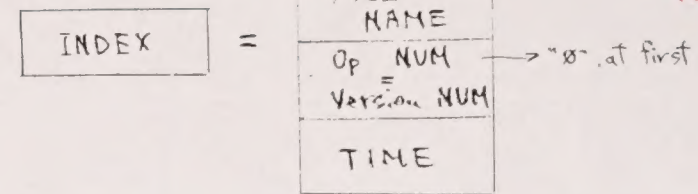 NAME
INDEX =
Op NUM → "ø" at first
=
Version NUM
TIME